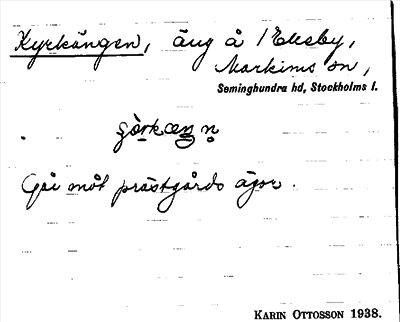 Kyrkängen, äng å 1 Ekeby,
Markims sn,
Seminghundra hd, Stockholms l.
Går mot prästgårds ägor.
KARIN OTTOSSON 1938.